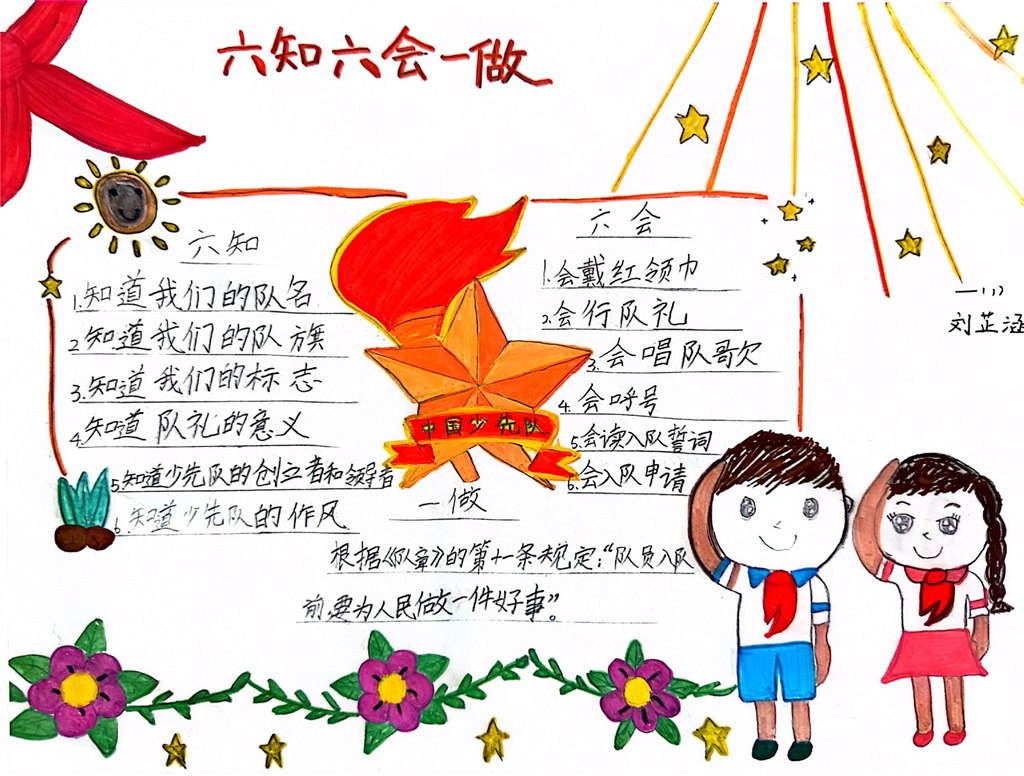 六知六会一做
六知
1.知道我们的队名
2.知道我们的队旗
3.知道我们的标志
4.知道队礼的意义
5.知道少先队的创立者和领导者
6.知道少先队的作风
中国少先队
六会
1.会戴红领巾
2.会行队礼
3.会唱队歌
4.会呼号
5.会读入队誓词
6.会入队申请
一做
根据《队章》的第十一条规定:“队员入队
前,要为人民做一件好事”。
一(1)
刘芷涵